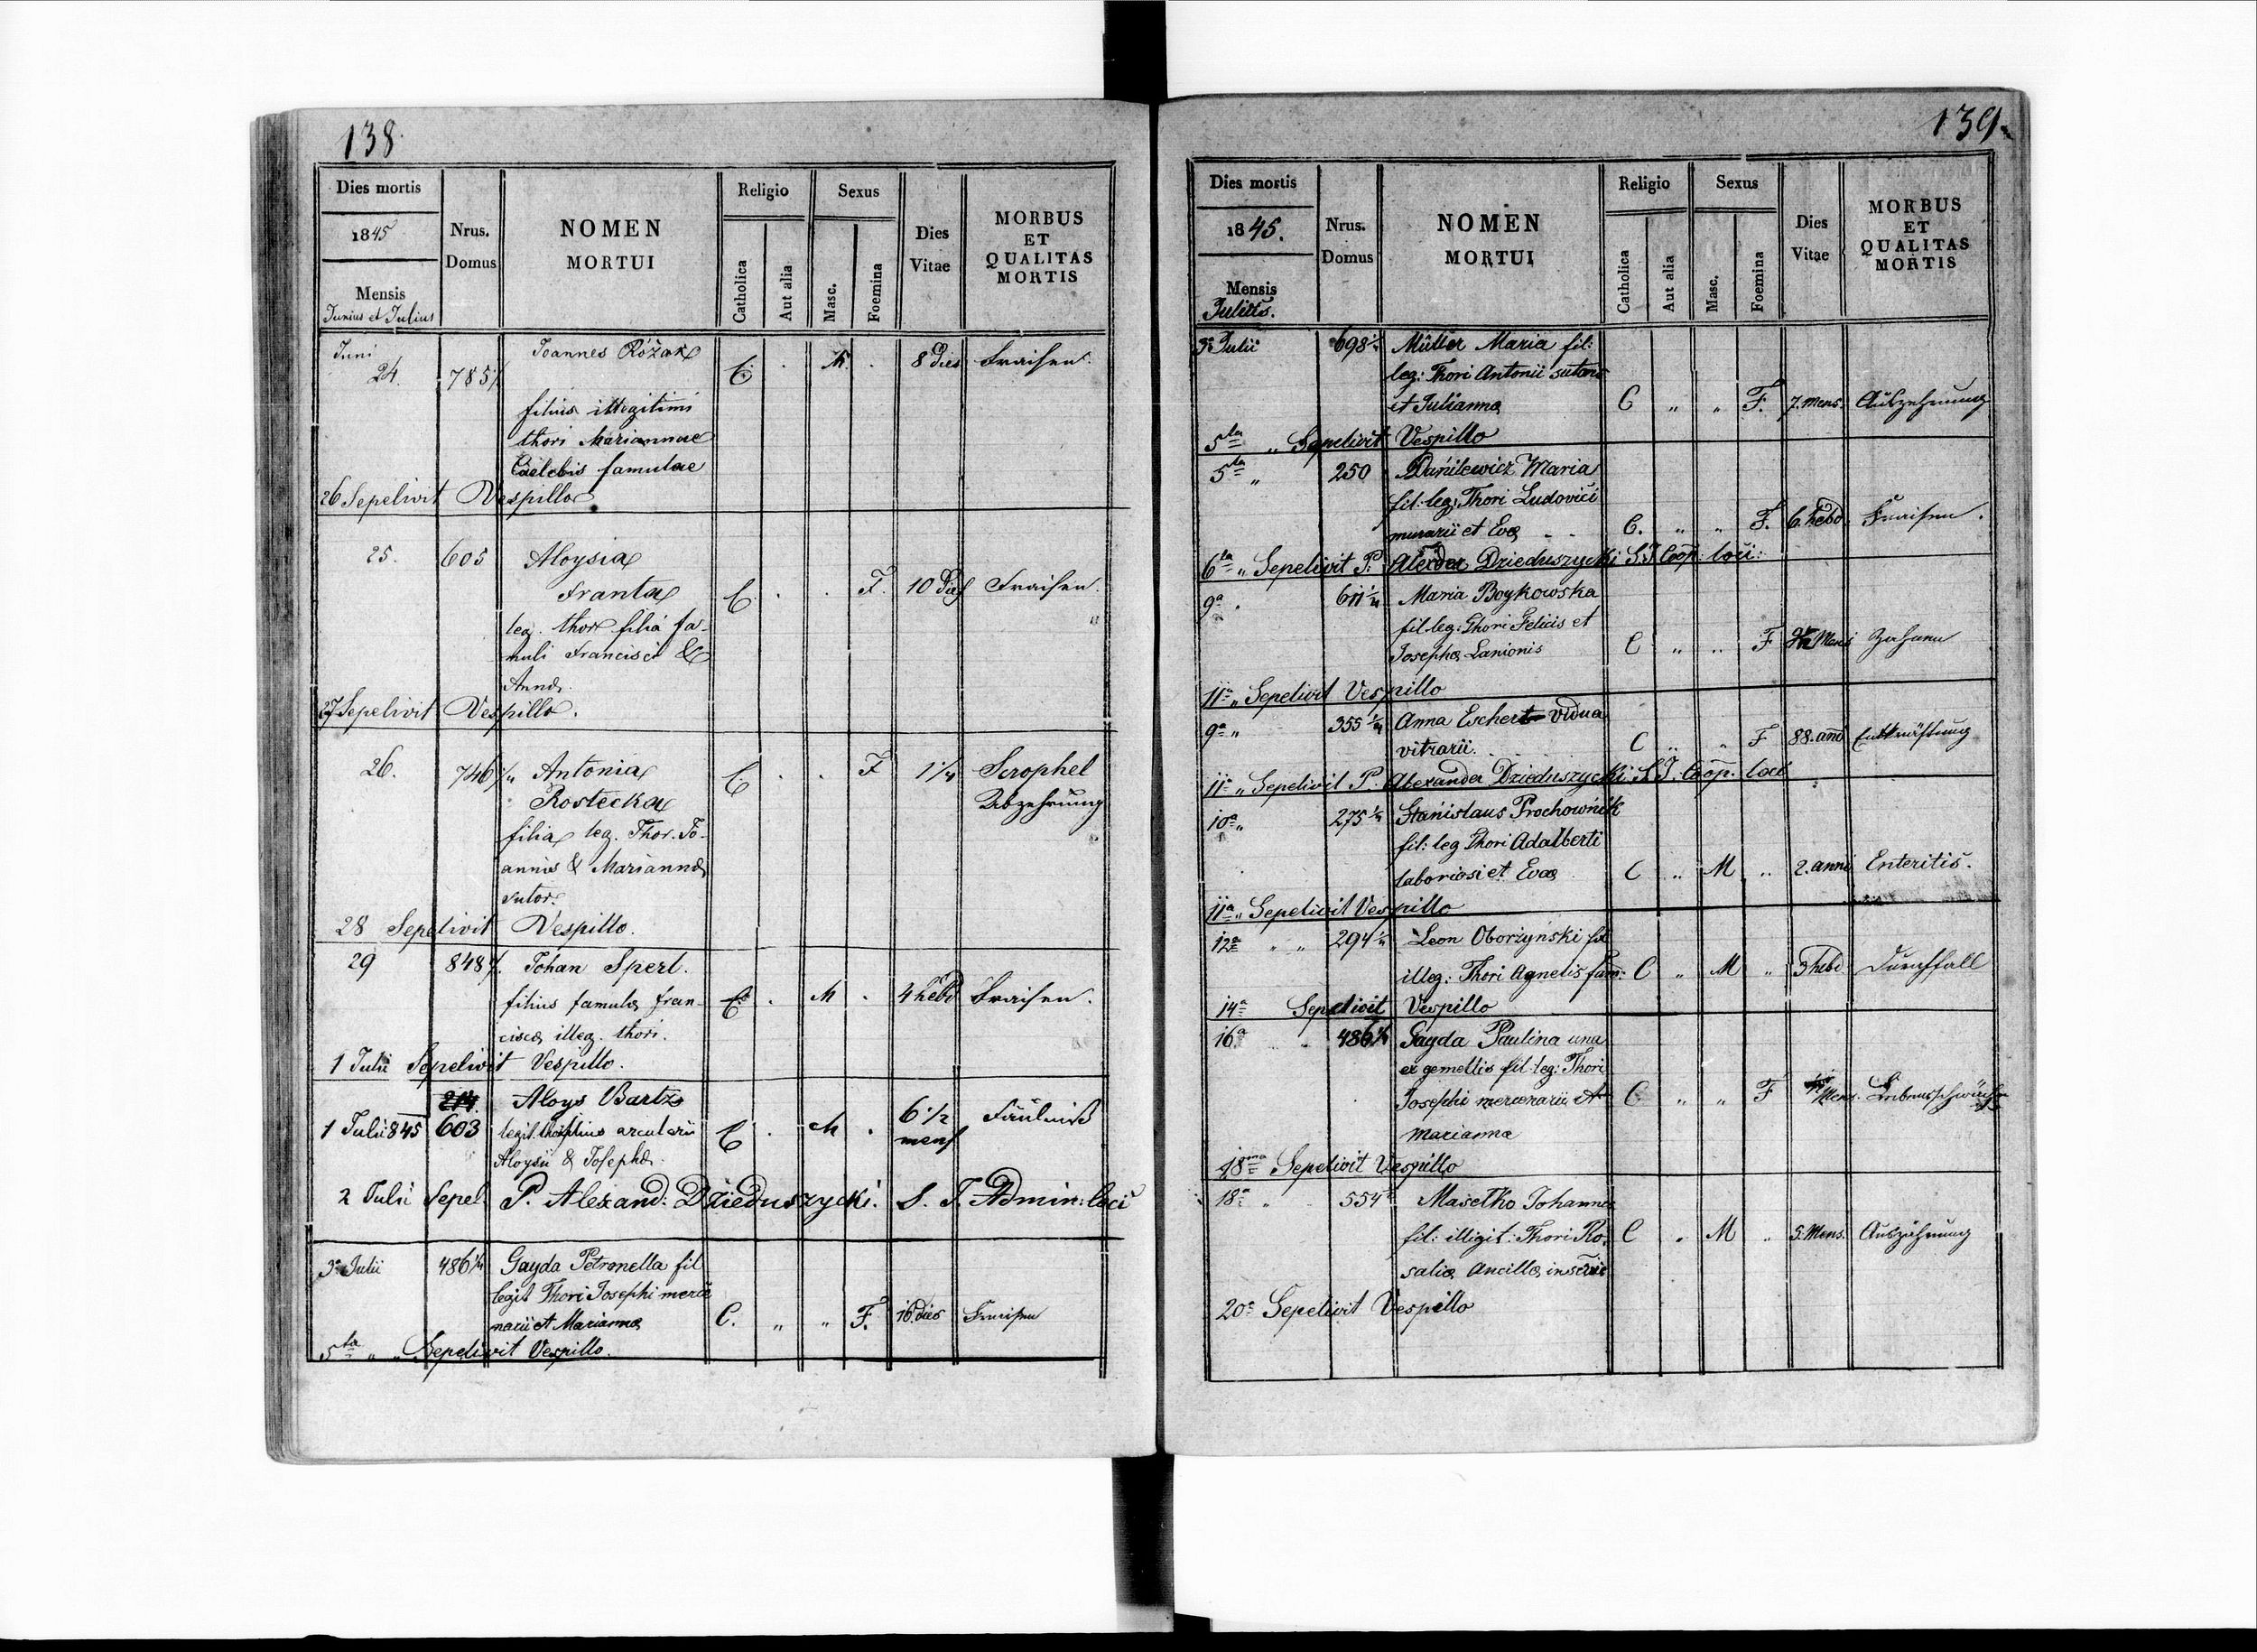 138.
Dies mortis
1845
Mensis
Junius et Julius
Nrus.
Domus
NOMEN
MORTUI
Religio
Catholica
Aut alia
Sexus
Masc.
Foemina
Dies
Vitae
MORBUS
ET
QUALITAS
MORTIS
Juni
24. 785 Joannes Różak C. M. 8 dies Fraisen.
filius illegitimi
thori Mariannae
Caelebis famulae
26 Sepelivit Vespillo
25. 605 Aloysia
Franta C. F. 10 Fraisen.
leg. thor filia fa-
muli Francisci &
Annæ.
27 Sepelivit Vespillo.
26. 746 Antonia C. F 1 1/4 Scrophel
Rostecka Abzehrung
filia leg. Thor. Jo-
annis & Mariannæ
sutor.
28 Sepelivit Vespillo.
29 848 Johan Sperl.
filius famulæ fran- C. M 4 hebd Fraisen.
ciscæ illeg. thori.
1 Julii Sepelivit Vespillo.
214. Aloys Bartz
1 Julii 845 603 legit. filius arcularii C M 6 1/2 mens Fäulniß
Aloysii & Josephæ.
2 Julii Sepel. P. Alexand: Dzieduszycki. S. J. Admin: loci
3 Julii 486 Gayda Petronella fil
legit Thori Josephi merce
narii et Mariannæ C. „ „ F. 16 dies Fraisen
5ta „ „ Sepelivit Vespillo.
139.
Dies mortis
1845.
Mensis
Julius.
Nrus.
Domus
NOMEN
MORTUI
Religio
Catholica
Aut alia
Sexus
Masc.
Foemina
Dies
Vitae
MORBUS
ET
QUALITAS
MORTIS
3 Julii 698 Müller Maria fil:
leg: Thori Antonii sutoris
et Julianna C „ „ F. 7. mens. Auszehrung
5ta „ Sepelivit Vespillo
5ta „ 250 Danilewicz Maria
fil. leg: Thori Ludovici
murarii et Evæ C. „ „ F. 6. hebd. Fraisen.
6ta „ Sepelivit P. Alexder Dzieduszycki S.J. Coop: loci:
9a 611 Maria Boykowska
fil leg: Thori Felicis et
Josephæ Lanionis C „ „ F Mens Zahnen
11a „ Sepelivit Vespillo
9a „ 355 Anna Eschert vidua
vitrarii. C „ „ F 88. ann Entkräftung
11a „ Sepelivit P. Alexander Dzieduszycki S J. Coop. loci
10a „ 275 Stanislaus Prochownik
fil: leg Thori Adalberti
laboriosi et Evæ C „ M „ 2. anni Enteritis.
11a „ Sepelivit Vespillo
12a „ „ 294 Leon Oborzynski fil
illeg: Thori Agnetis fam: C „ M „ 3 hebd Durchfall
14a Sepelivit Vespillo
16a 486 Gayda Paulina una
ex gemellis fil. leg: Thori
Josephi mercenarii et C „ „ F Mens. Lebensschwäche
Marianna
18ma Sepelivit Vespillo
18a „ 554 Masełko Johannes
fil: illigit: Thori Ro- C „ M „ 5. Mens. Auszährung
saliæ Ancillæ
20a Sepelivit Vespillo